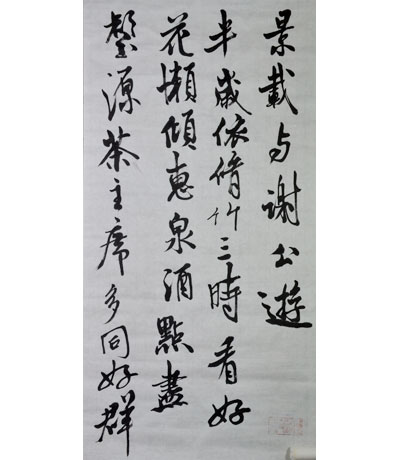 景載与謝公遊
半歲依脩竹三時看好
花懶傾惠泉酒點盡
壑源茶主席多同好群